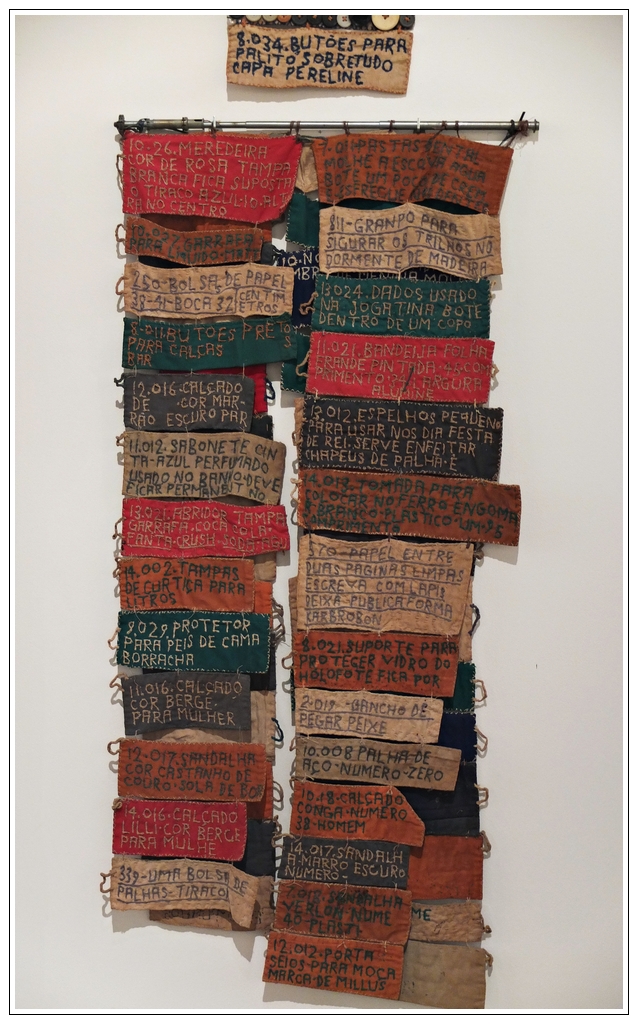 8.034.BUTÕES PARA
PALITÓ SOBRETUDO
CAPA PERELINE
10-26.MEREDEIRA
COR DE ROSA TAMPA
BRANCA FICA SUPOSTA
O TIRACO AZUL
RANO CENTRO
GARRAFA
PARA
250-BOLSA DE PAPEL
38-41 BOCA 32 CENTIM
ETROS
8.011.BUTOES PRETO
S.
PARA CALÇAS
BAR
12.016.CALÇADO
DE COR MAR
RÃO ESCURO PAR
11.012.SABONETE CIN
TA-AZUL PERFUMADO
USADO NO BANIO-DEVE
FICAR PERMANENT NO
13.021.ABRIDOR TAMPA
GARRAFA.COCA COLA.
FANTA-CRUSH-SODA
14.002.TAMPAS
DE CURTICA PARA
LITROS
8.029.PROTETOR
PARA PEIS DE CAMA
BORRACHA
11.016.CALÇADO
COR BERGE.
PARA MULHER
12-017.SANDALHA
COR CASTANHO DE
COURO.SOLA DE BOR
14.016.CALÇADO
LILLI-COR BERGE
PARA MULHE
339-UMA BOLSA DE
PALHAS-TIRACOL
PASTAS
MOLHE A ESCOVA AGUA
BOTE UM
811-GRANPO PARA
SIGURAR OS TRILHOS NO
DORMENTE DE MADEIRA
13.024.DADOS USADO
NA JOGATINA BOTE
DENTRO DE UM COPO
11.021.BANDEIJA FOLHA
GRANDE PINTADA.45 COM
PRIMENTO LARGURA
13.012.ESPELHOS PEQUENO
PARA USAR NOS DIA FESTA
DE REI.SERVE ENFEITAR
CHAPEUS DE PALHA.E
14.013.TOMADA PARA
COLOCAR NO FERRO ENGOMA
R BRANCO.PLASTICO.UM.25
COMPRIMENTO
370-PAPEL ENTRE
DUAS PAGINAS LIMPAS
ESCREVA COM LAPI
DEIXA-PUBLICA FORMA
KARBROBON
8.021.SUPORTE PARA
PROTEGER VIDRO DO
HOLOFOTE FICA POR
2.019-GANCHO DE
PEGAR PEIXE
10.008 PALHA DE
AÇO-NUMERO-ZERO
10.18-CALÇADO
CONGA-NUMERO
38-HOMEM
14.017.SANDALH
A-MARRO ESCURO
NUMERO-
SANDALHA
NUME
40-PLASTI
ME
12.012.PORTA
SEIOS-PARA MOÇA
MARCA DE MILLUS